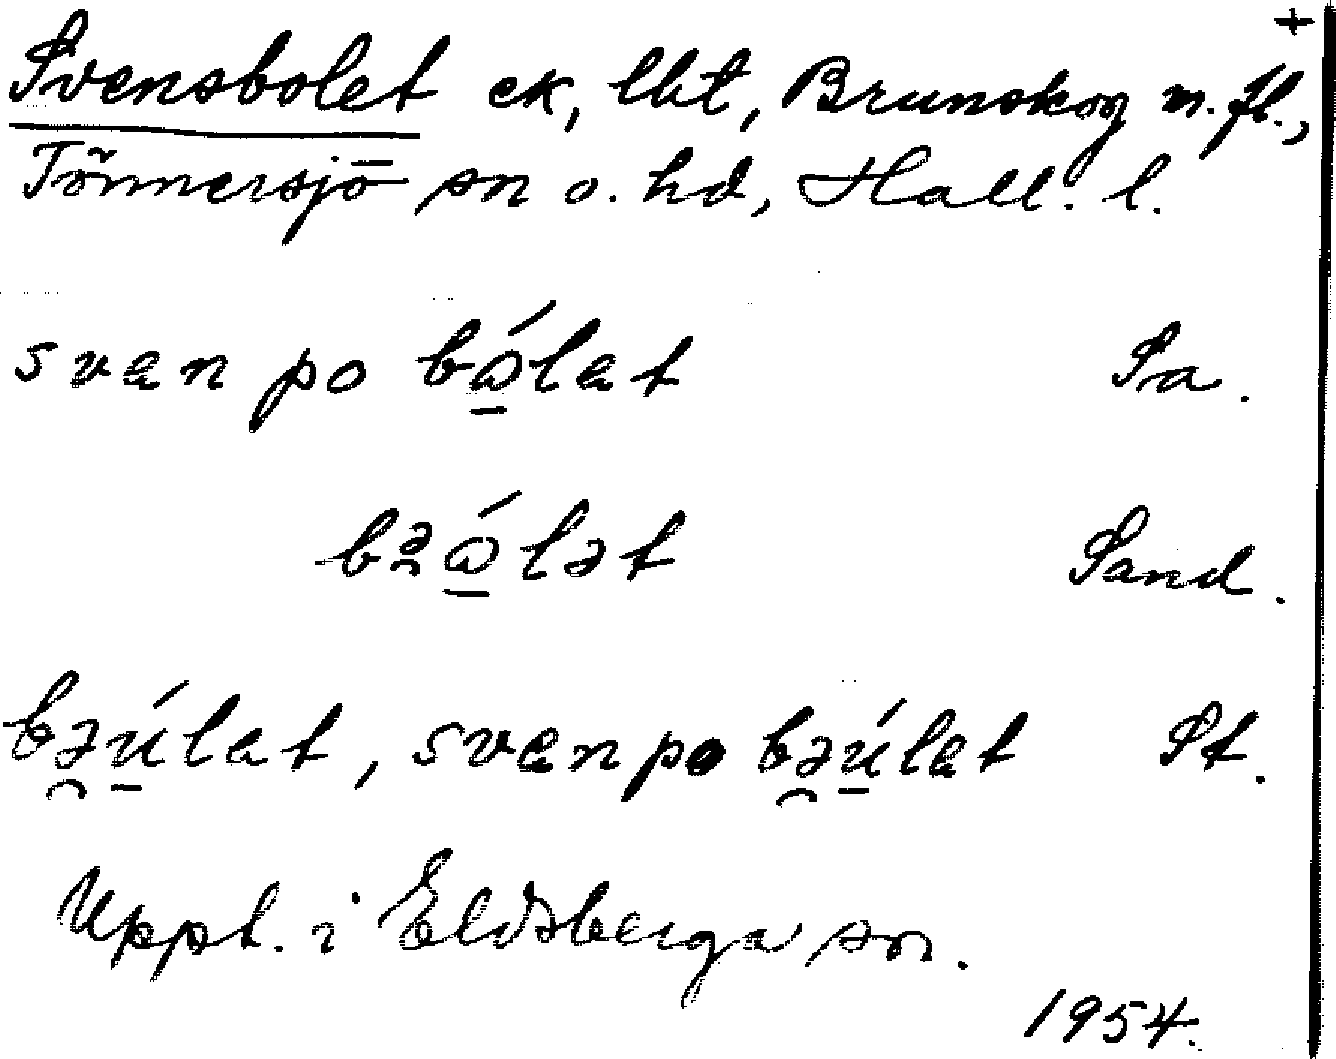 +
Svensbolet ek, lht, Brunskog m. fl.,
Tönnersjö sn o. hd, Hall. l.
svan po bώ̱lat Sa.
bəώ̱lət Sand.
bə̯ú̱lat, svæn po bə̯ú̱læt St.
Uppt. i Eldsberga sn.
1954.